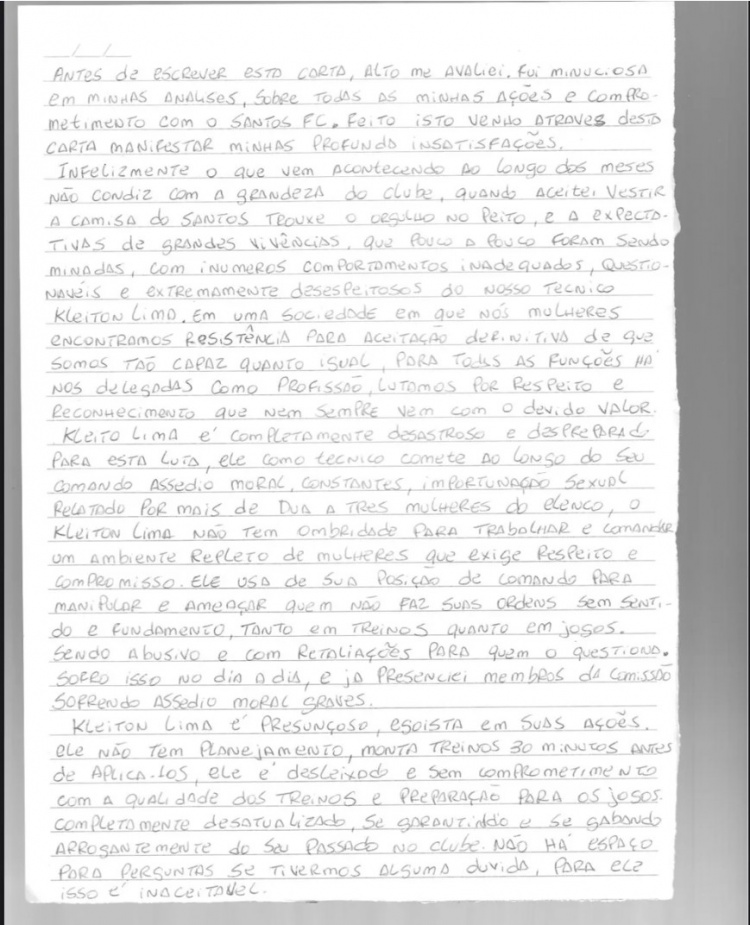 __/__/__
ANTES de escrever esta carta, alto me avaliei. Fui minuciosa
em minhas analises, sobre todas as minhas ações e compro-
metimento com o Santos FC. Feito isto venho atraves desta
carta manifestar minhas profunda insatisfações.
Infelizmente o que vem acontecendo ao longo dos meses
não condiz com a grandeza do clube, quando aceitei vestir
a camisa do Santos trouxe o orgulho no peito, e a expecta-
tivas de grandes vivências, que pouco a pouco foram sendo
minadas, com inumeros comportamentos inadequados, questio-
naveís e extremamente desespeitosos do nosso tecnico
Kleiton Lima. Em uma sociedade em que nós mulheres
encontramos resistência para aceitação definitiva de que
somos tão capaz quanto igual, para todas as funções há
nos delegadas como profissão, lutamos por respeito e
reconhecimento que nem sempre vem com o devido valor.
Kleito Lima é completamente desastroso e despreparado
para esta luta, ele como tecnico comete ao longo do seu
comando assedio moral, constantes, importunação sexual
relatado por mais de dua a tres mulheres do elenco, o
Kleiton Lima não tem ombridade para trabalhar e comandar
um ambiente repleto de mulheres que exige respeito e
compromisso. Ele usa de sua posição de comando para
manipular e ameaçar quem não faz suas ordens sem senti-
do e fundamento, tanto em treinos quanto em jogos.
Sendo abusivo e com retaliações para quem o questiona.
Sofro isso no dia a dia, e ja presenciei membros da comissão
sofrendo assedio moral graves.
Kleiton Lima é presunçoso, egoista em suas ações.
ele não tem planejamento, monta treinos 30 minutos antes
de aplica-los, ele é desleixado e sem comprometimento
com a qualidade dos treinos e preparação para os jogos.
Completamente desatualizado, se garantindo e se gabando
arrogantemente do seu passado no clube. Não há espaço
para perguntas se tivermos alguma duvida, para ele
isso é inaceitavel.